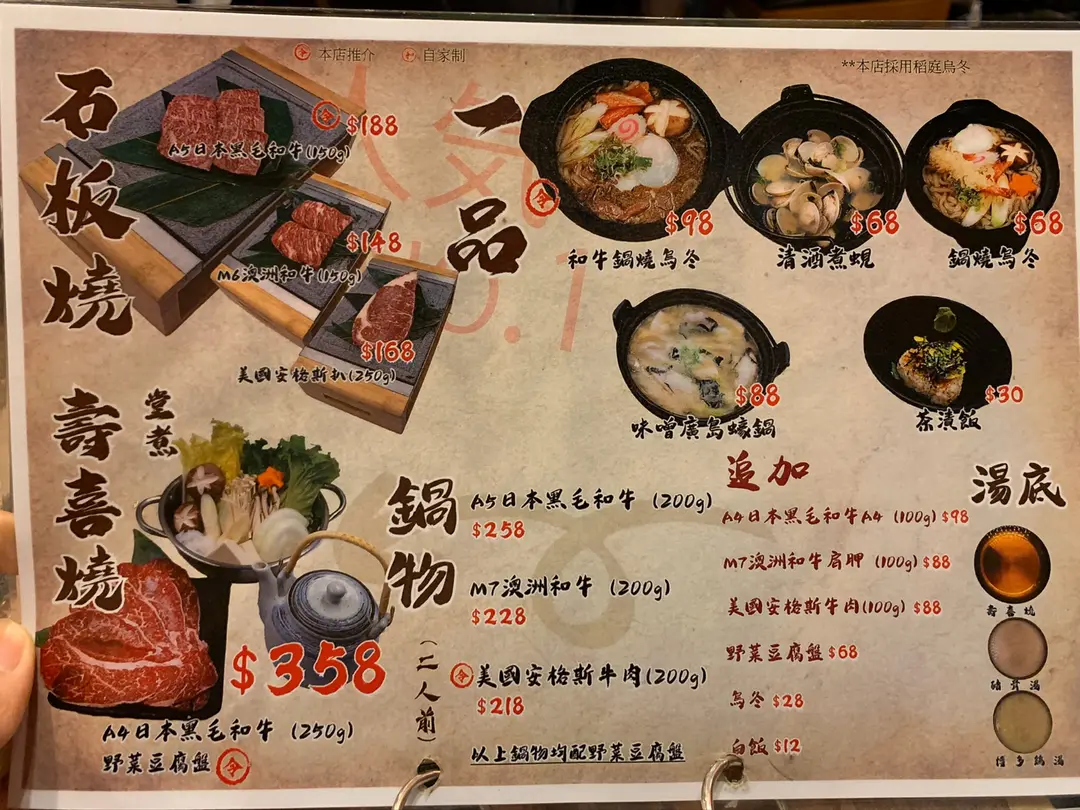 本店推介 自家制
**本店採用稻庭烏冬
石板燒
$188
A5日本黑毛和牛(150g)
$148
M6澳洲和牛(150g)
$168
美國安格斯扒(250g)
人気
No.1
一品
$98
和牛鍋燒烏冬
$68
清酒煮蜆
$68
鍋燒烏冬
$88
味噌廣島蠔鍋
$30
茶漬飯
壽喜燒
堂煮
$358
A4日本黑毛和牛 (250g)
野菜豆腐盤
鍋物
(二人前)
A5日本黑毛和牛 (200g)
$258
M7澳洲和牛 (200g)
$228
美國安格斯牛肉(200g)
$218
以上鍋物均配野菜豆腐盤
追加
A4日本黑毛和牛A4 (100g) $98
M7澳洲和牛肩胛 (100g) $88
美國安格斯牛肉(100g) $88
野菜豆腐盤 $68
烏冬 $28
白飯 $12
湯底
壽喜燒
豬骨湯
博多鷄湯